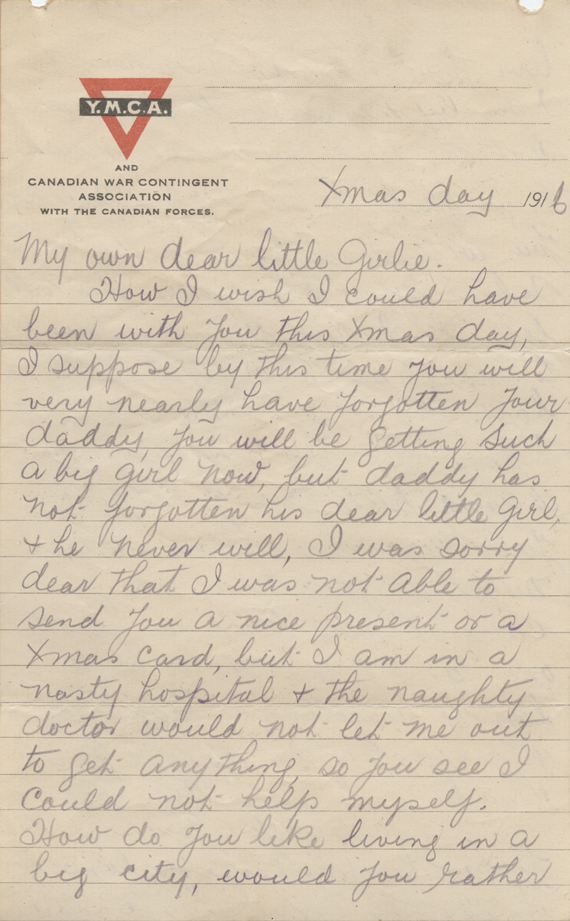 Y.M.C.A.
AND
CANADIAN WAR CONTINGENT
ASSOCIATION
WITH THE CANADIAN FORCES.
Xmas day 1916
My own dear little Girlie.
How I wish I could have
been with you this Xmas day,
I suppose by this time you will
very nearly have forgotten your
daddy, you will be getting such
a big girl now, but daddy has
not forgotten his dear little girl,
& he never will, I was sorry
dear that I was not able to
send you a nice present or a
Xmas card, but I am in a
nasty hospital & the naughty
doctor would not let me out
to get anything, so you see I
could not help myself.
How do you like living in a
big city, would you rather